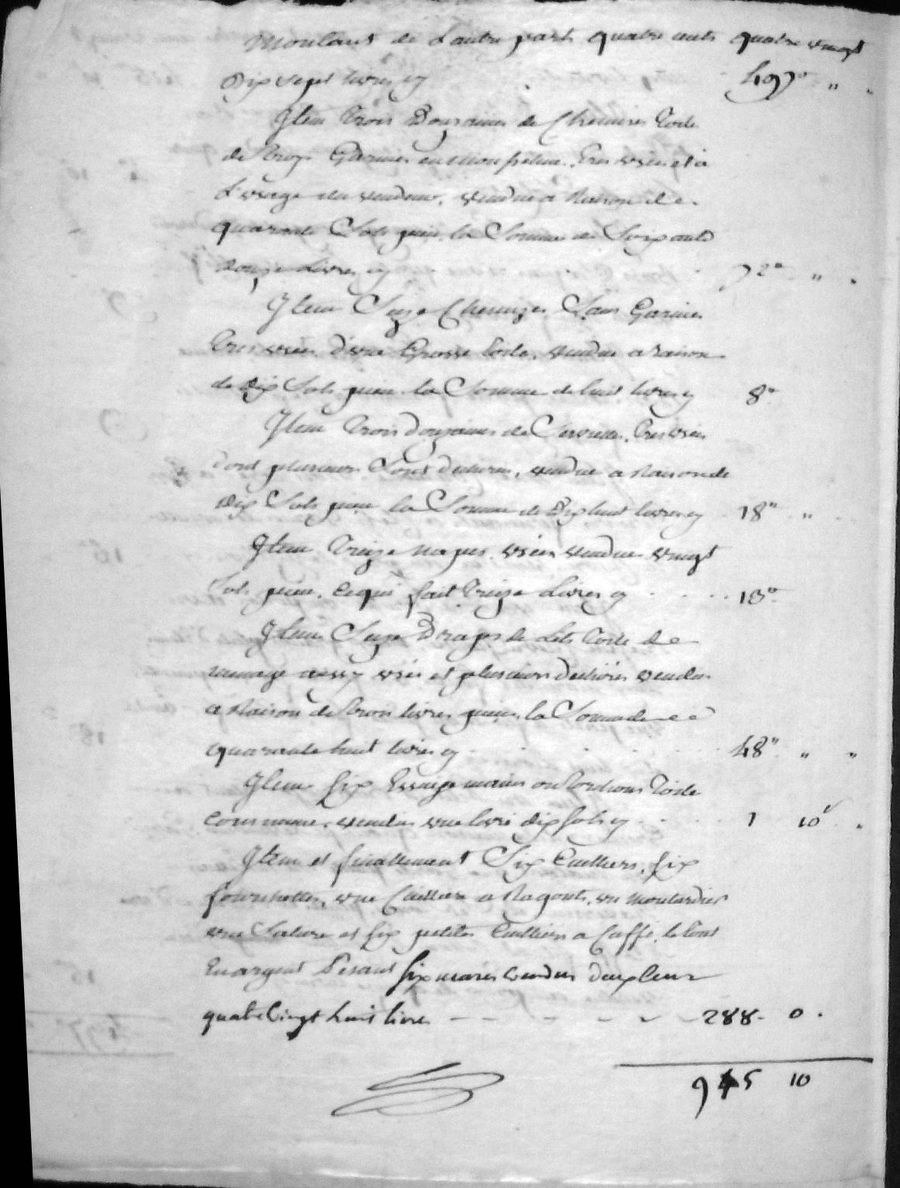 Montant de L'autre part quatre cents quatre vingt
Dix sept livres cy 497 " "
Item Trois Douzaines de Chemises Toile
de Troye Garnies en Mousseline, Tres usées et à
L'usage du vendeur, vendue a Raison de
quarante Sols piece, la Somme de Soixante
douze Livres cy 72 " "
Item Seize Chemizes Sans Garnies
Tres usées d'une Grosse toile, vendue a raison
de dix Sols piece la Somme de huit livres cy 8
Item Trois douzaines de Serviettes, Tres usées
dont plusieurs Sont dechirées, vendue a Raison de
dix Sols piece la Somme de Dix huit livres cy 18 "
Item Treize Napes usées vendue vingt
Sols piece, ce qui fait Treize Livres cy 13
Item Seize Draps de Lits Toile de
menage aussy usés et plusieurs dechirés vendus
a Raison de trois livres piece, la Somme de
quarante huit livres cy 48 " "
Item Six Essuye mains ou Torchons Toile
commune, vendus une livre dix sols cy 1 10
Item et finallement Six Cuilliers, six
fourchettes, une Cuilliere a Ragouts, un moutardier
une Saliere et six petites Cuilliers a Caffé, le tout
En argent Pesant six marcs vendus deux Cent
quatre Vingt huit livres 288 0
945 10